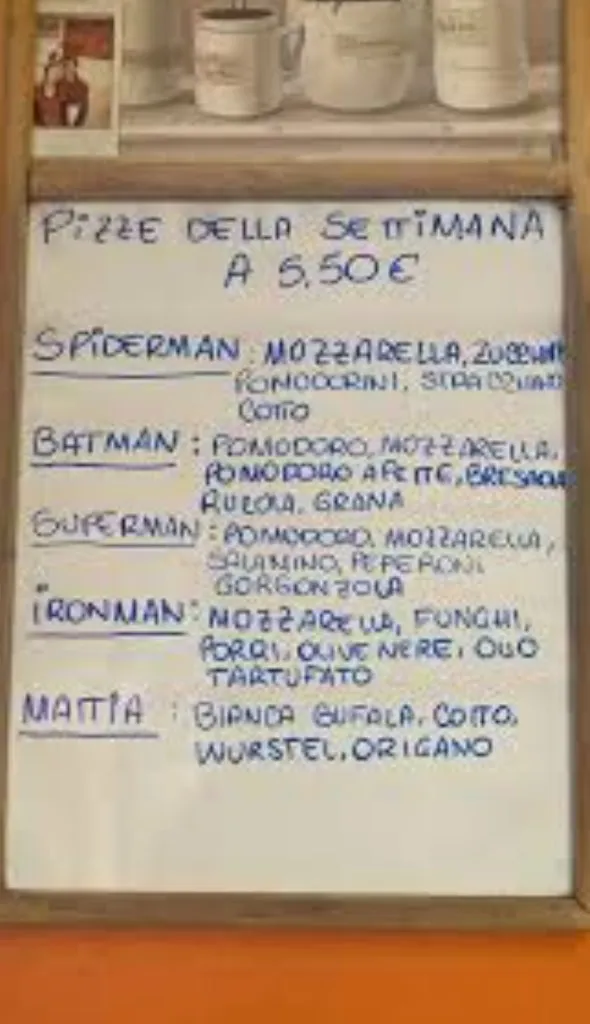 PiZZE DELLA SETTiMANA
A 5.50€
SPiDERMAN: MOZZARELLA, ZUCCHINE
POMODORINI, STRACCHINO
COTTO
BATMAN: POMODORO, MOZZARELLA,
POMODORO A FETTE, BRESAOLA
RUCOLA, GRANA
SUPERMAN: POMODORO, MOZZARELLA,
SALAMINO, PEPERONI
GORGONZOLA
iRONMAN: MOZZARELLA, FUNGHI,
PORRI, OLIVE NERE, OLIO
TARTUFATO
MATTiA: BIANCA BUFALA, COTTO,
WURSTEL, ORIGANO